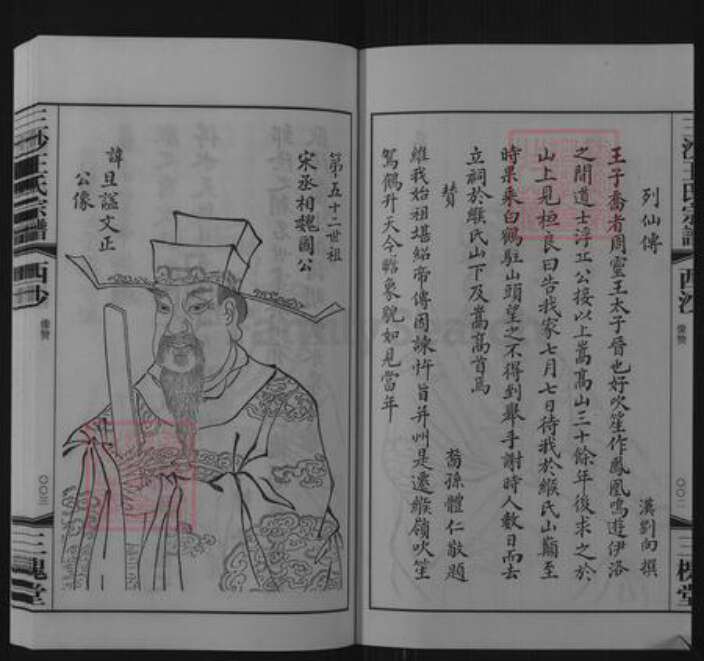 三沙王氏宗譜
西沙
像贊
〇〇二
三槐堂
列仙傳
漢劉向撰
王子喬者周靈王太子晉也好吹笙作鳳凰鳴遊伊洛
之間道士浮丘公接以上嵩高山三十餘年後求之於
山上見桓良曰告我家七月七日待我於緱氏山巔至
時果乘白鶴駐山頭望之不得到舉手謝時人數日而去
立祠於緱氏山下及嵩高首焉
贊
裔孫體仁敬題
維我始祖堪紹帝傳因諫忤旨并州是遷緱嶺吹笙
駕鶴升天今瞻象貌如見當年
第五十二世祖
宋丞相魏國公
諱旦諡文正
公像
三沙王氏宗譜
西沙
像贊
〇〇三
三槐堂